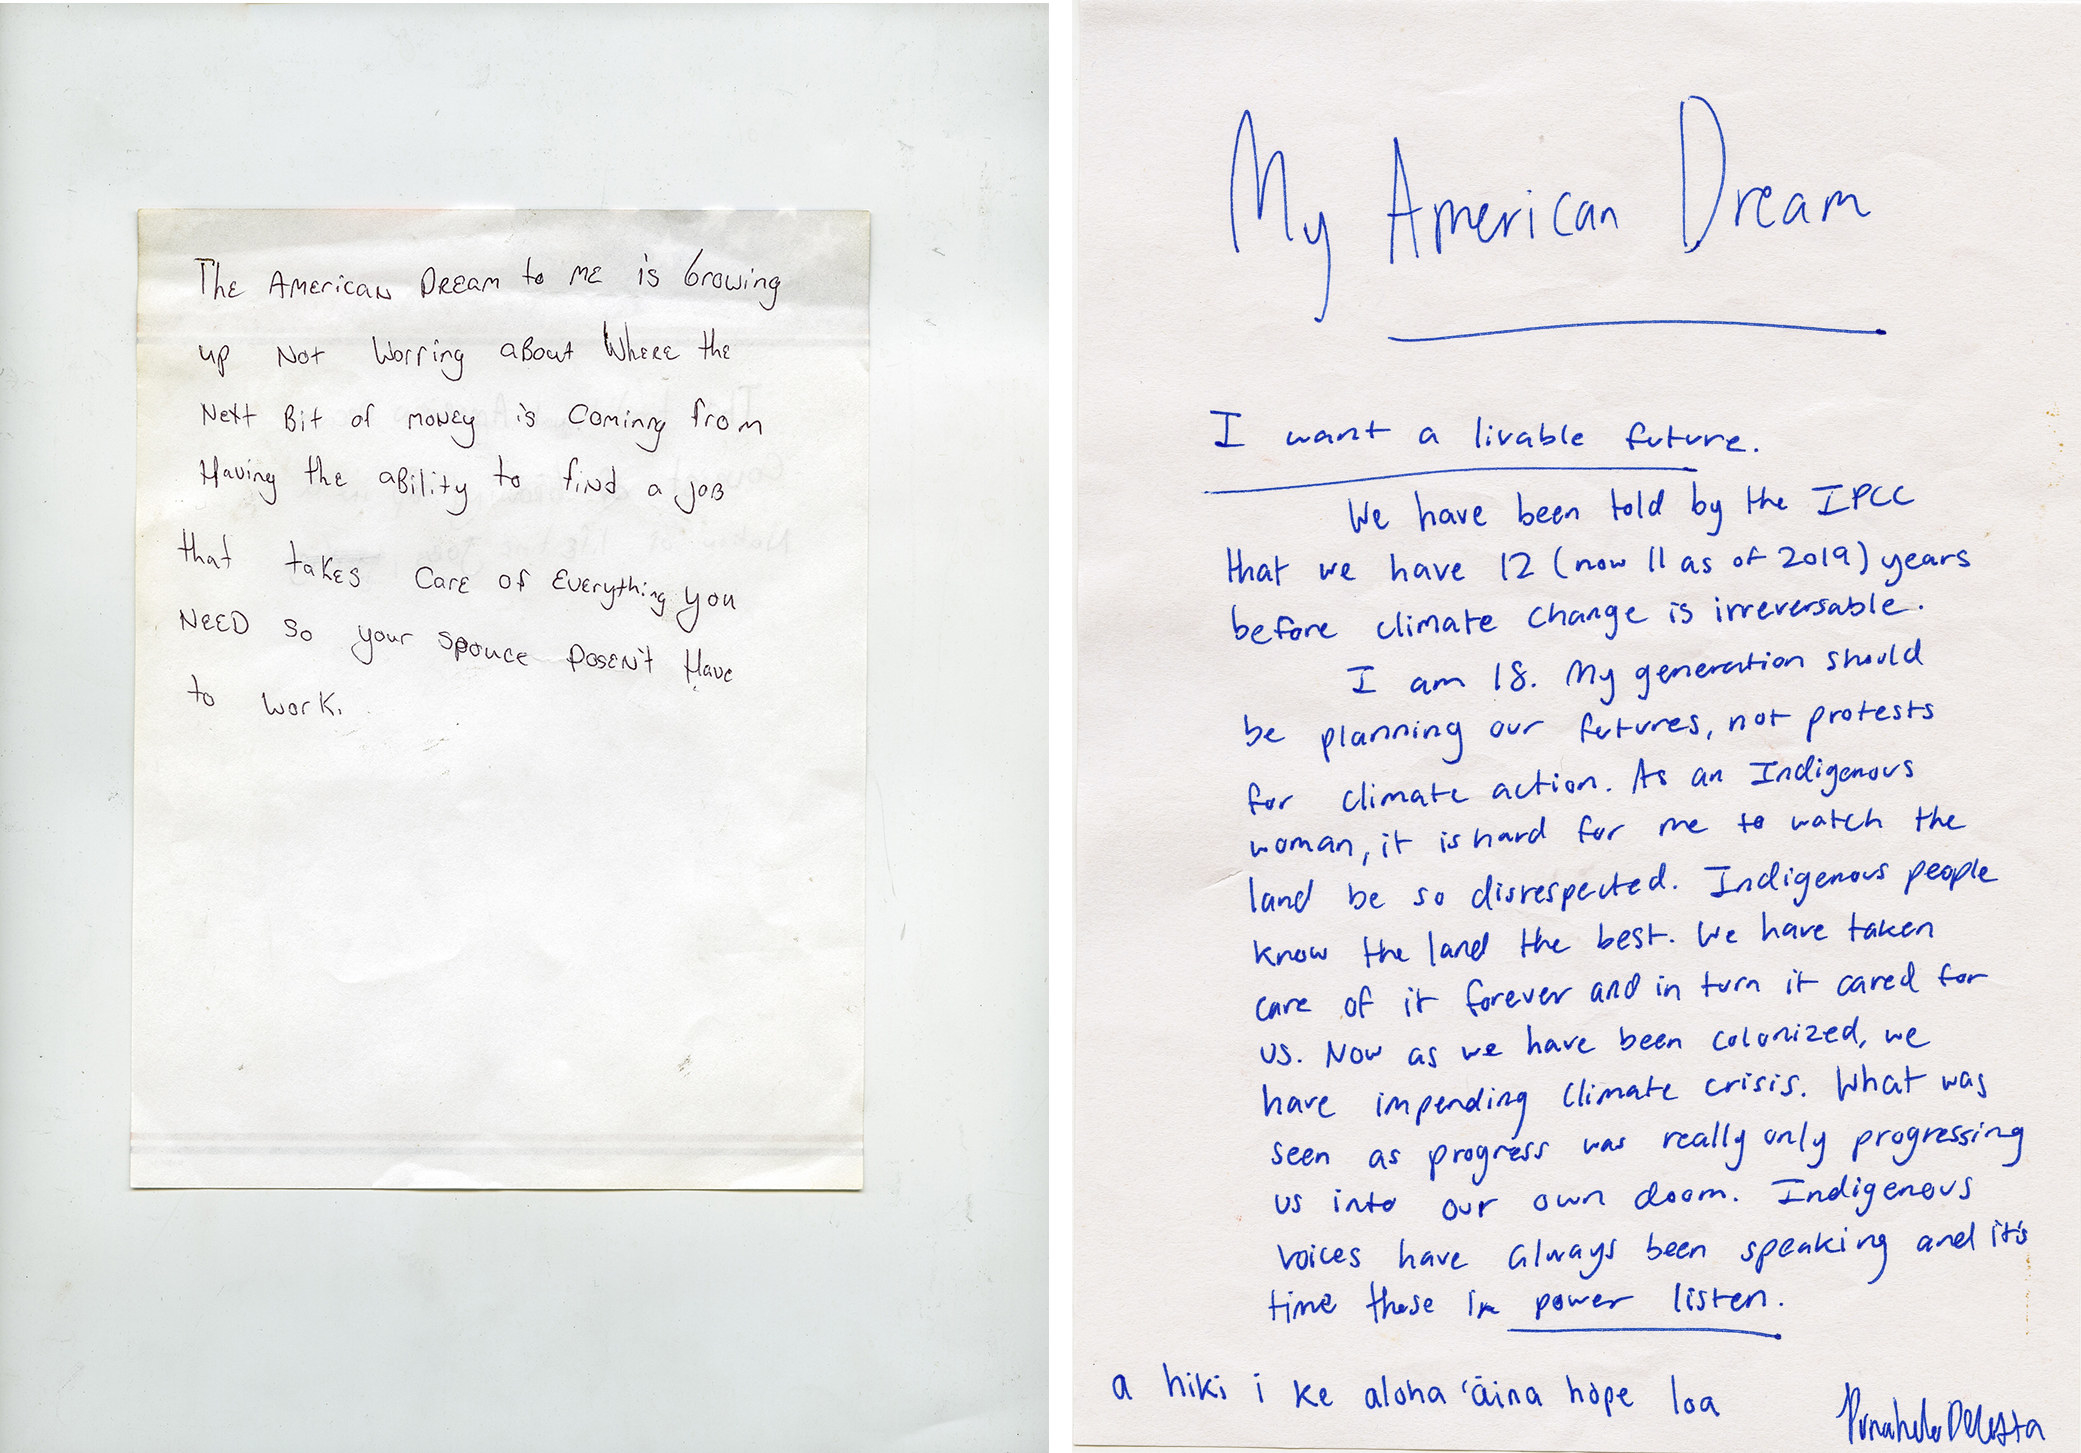 The American Dream to me is Growing
up Not Worring about Where the
Next Bit of money is Coming from
Having the ability to find a job
that takes Care of Everything you
NEED so your spouce Dosen't Have
to work.
My American Dream
I want a livable future.
We have been told by the IPCC
that we have 12 (now 11 as of 2019) years
before climate change is irreversable.
I am 18. My generation should
be planning our futures, not protests
for climate action. As an Indigenous
woman, it is hard for me to watch the
land be so disrespected. Indigenous people
know the land the best. We have taken
care of it forever and in turn it cared for
us. Now as we have been colonized, we
have impending climate crisis. What was
seen as progress was really only progressing
us into our own doom. Indigenous
voices have always been speaking and it's
time those in power listen.
a hiki i ke aloha ʻāina hope loa